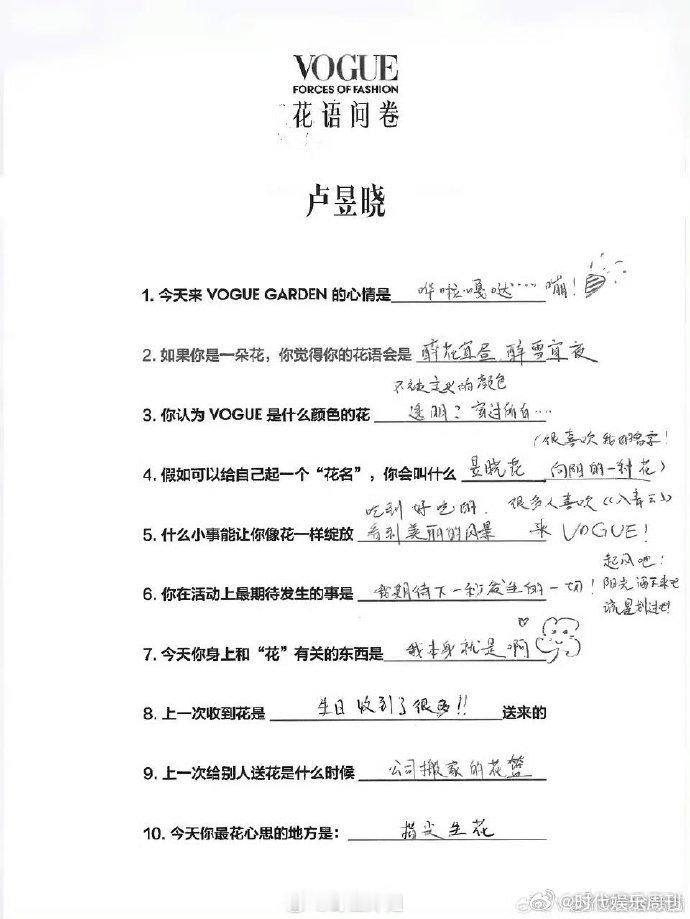 VOGUE
FORCES OF FASHION
花语问卷
卢昱晓
1. 今天来 VOGUE GARDEN 的心情是 哗啦嘎哒…… 嘣！
2. 如果你是一朵花，你觉得你的花语会是 醉花宜昼 醉雪宜夜
不被定义的颜色
3. 你认为 VOGUE 是什么颜色的花 透明？穿过所有…
（很喜欢我的名字！
4. 假如可以给自己起一个“花名”，你会叫什么 昱晓花 向阳的一种花）
吃到好吃的、 很多人喜欢《入青云》
5. 什么小事能让你像花一样绽放 看到美丽的风景 来 VOGUE！
起风吧！
6. 你在活动上最期待发生的事是 我期待下一秒发生的一切！ 阳光洒下来吧
流星划过吧
7. 今天你身上和“花”有关的东西是 我本身就是啊
8. 上一次收到花是 生日收到了很多！！ 送来的
9. 上一次给别人送花是什么时候 公司搬家的花篮
10. 今天你最花心思的地方是： 指尖生花
@时代娱乐周刊